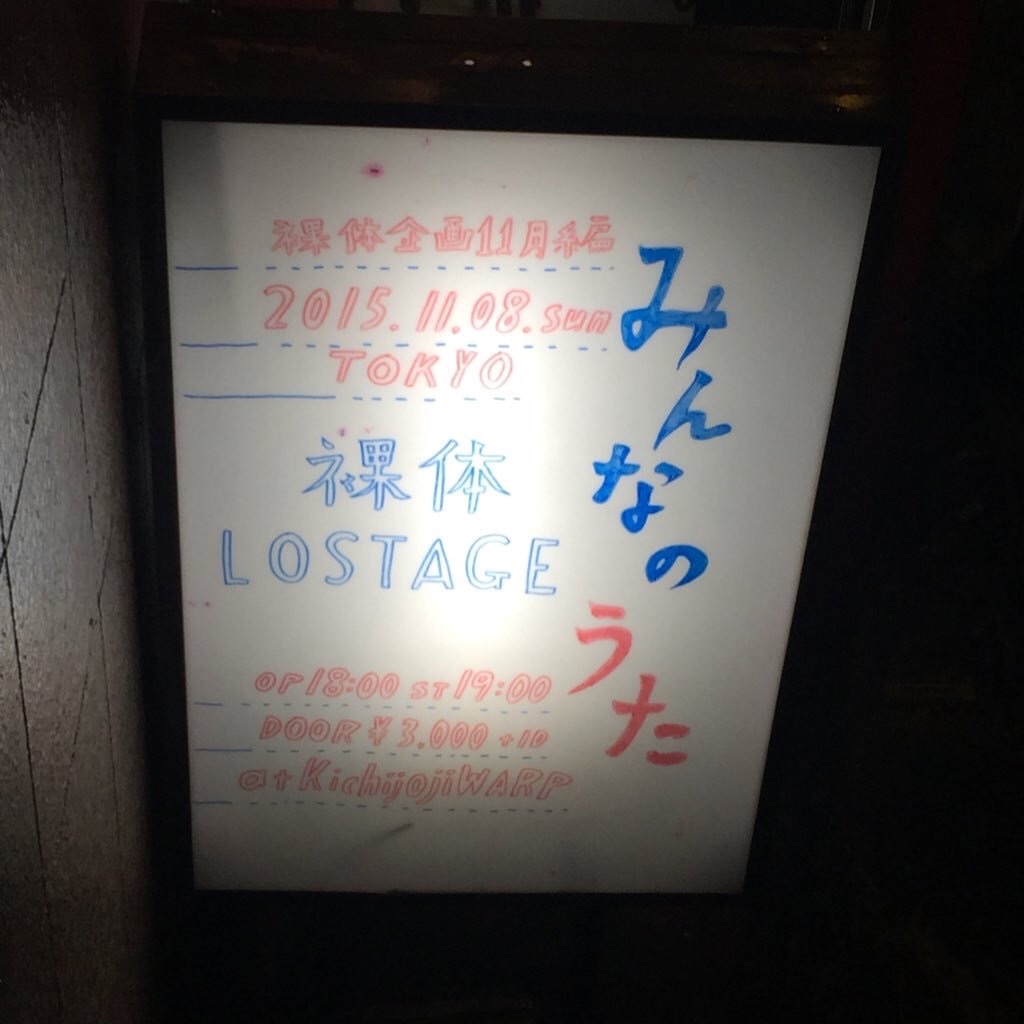 みんなのうた
裸体企画11月編
2015.11.08.sun
TOKYO
裸体
LOSTAGE
OP18:00 ST19:00
DOOR¥3.000+1D
at KichijojiWARP